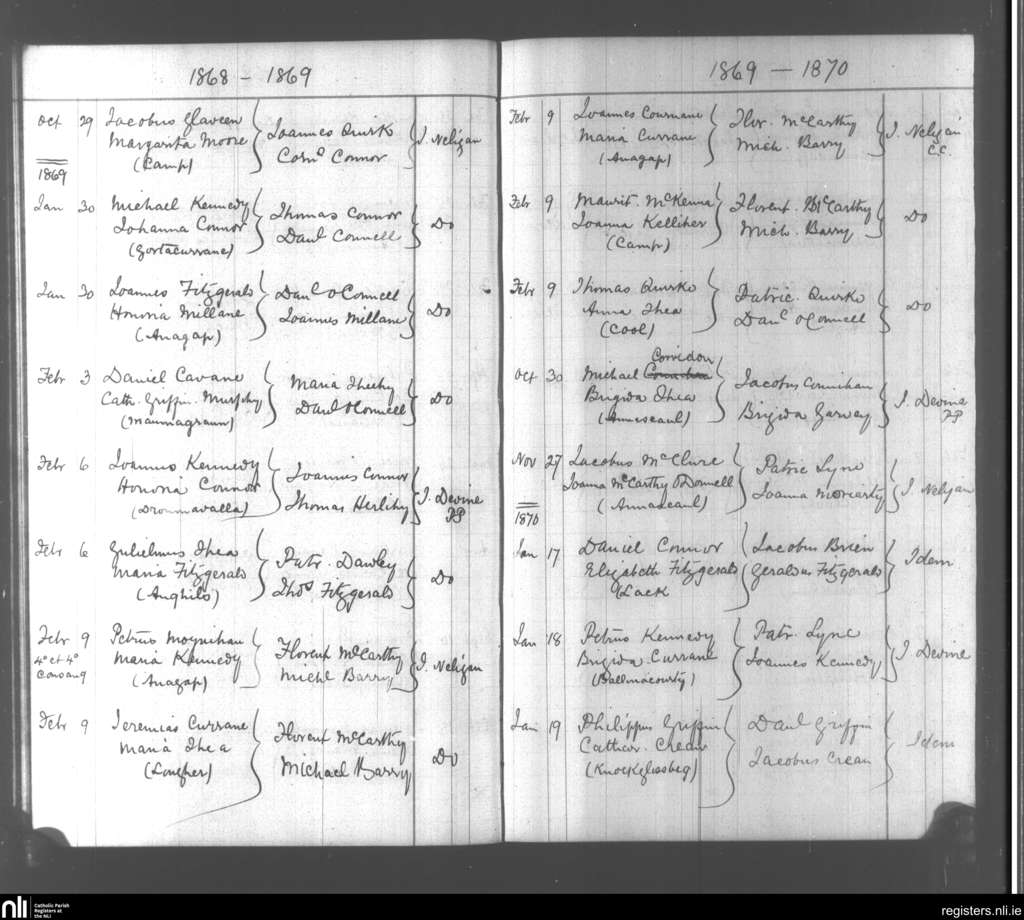 1868 - 1869
Oct 29 Jacobus Glaveen
Margarita Moore
(Camp)
Joannes Quirk
Corns Connor
J. Neligan
1869
Jan 30 Michael Kennedy
Johanna Connor
(Gortacurrane)
Thomas Connor
Danl Connell
Do
Jan 30 Joannes Fitzgerald
Honoria Millane
(Anagap)
Danl O'Connell
Joannes Millane
Do
Febr 3 Daniel Cavane
Cath. Griffin Murphy
(Maumagraum)
Maria Sheehy
Danl O'Connell
Do
Febr 6 Joannes Kennedy
Honoria Connor
(Drommavalla)
Joannes Connor
Thomas Herlihy
J. Devine
PP
Febr 6 Gulielmus Shea
Maria Fitzgerald
(Anghils)
Patr. Dawley
Thos Fitzgerald
Do
Febr 9 Petrus Moynihan
4° et 4° Maria Kennedy
(Anagap)
Florent McCarthy
Michl Barry
J. Neligan
Febr 9 Jeremias Currane
Maria Shea
(Lougher)
Florent McCarthy
Michael Barry
Do
1869 — 1870
Febr 9 Joannes Counane
Maria Currane
(Anagap)
Flor. McCarthy
Mich. Barry
J. Neligan
C.C.
Febr 9 Maurit. McKenna
Joanna Kelliher
(Camp)
Florent. McCarthy
Mich. Barry
Do
Febr 9 Thomas Quirke
Anna Shea
(Cool)
Patric. Quirke
Danl O'Connell
Do
Corridon
Oct 30 Michael
Brigida Shea
(Annescaul)
Jacobus Counihan
Brigida Garvey
J. Devine
PP
Nov 27 Jacobus McClure
Joanna McCarthy O'Donnell
(Annascaul)
Patric Lyne
Joanna Moriarty
J. Neligan
1870
Jan 17 Daniel Connor
Elizabeth Fitzgerald
Lack
Jacobus Brien
Geraldus Fitzgerald
Idem
Jan 18 Petrus Kennedy
Brigida Currane
(Ballinacourty)
Patr. Lyne
Joannes Kennedy
J Devine
Jan 19 Philippus Griffin
Cather. Crean
(Knockglossbeg)
Danl Griffin
Jacobus Crean
Idem
nli
Catholic Parish
Registers at
the NLI
registers.nli.ie